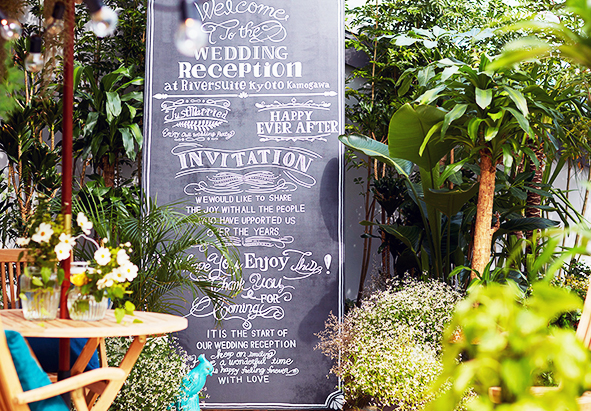 Welcome
To the
WEDDING
Reception
at RIVERSUITE KYOTO Kamogawa
Just Married
Enjoy our wedding party
HAPPY
EVER AFTER
INVITATION
WE WOULD LIKE TO SHARE
THE JOY WITH ALL THE PEOPLE
WHO HAVE SUPPORTED US
OVER THE YEARS
Hope You Enjoy This!
Thank You
FOR
Coming!
IT IS THE START OF
OUR WEDDING RECEPTION
keep on smiling
a wonderful time
happy feeling forever
WITH LOVE